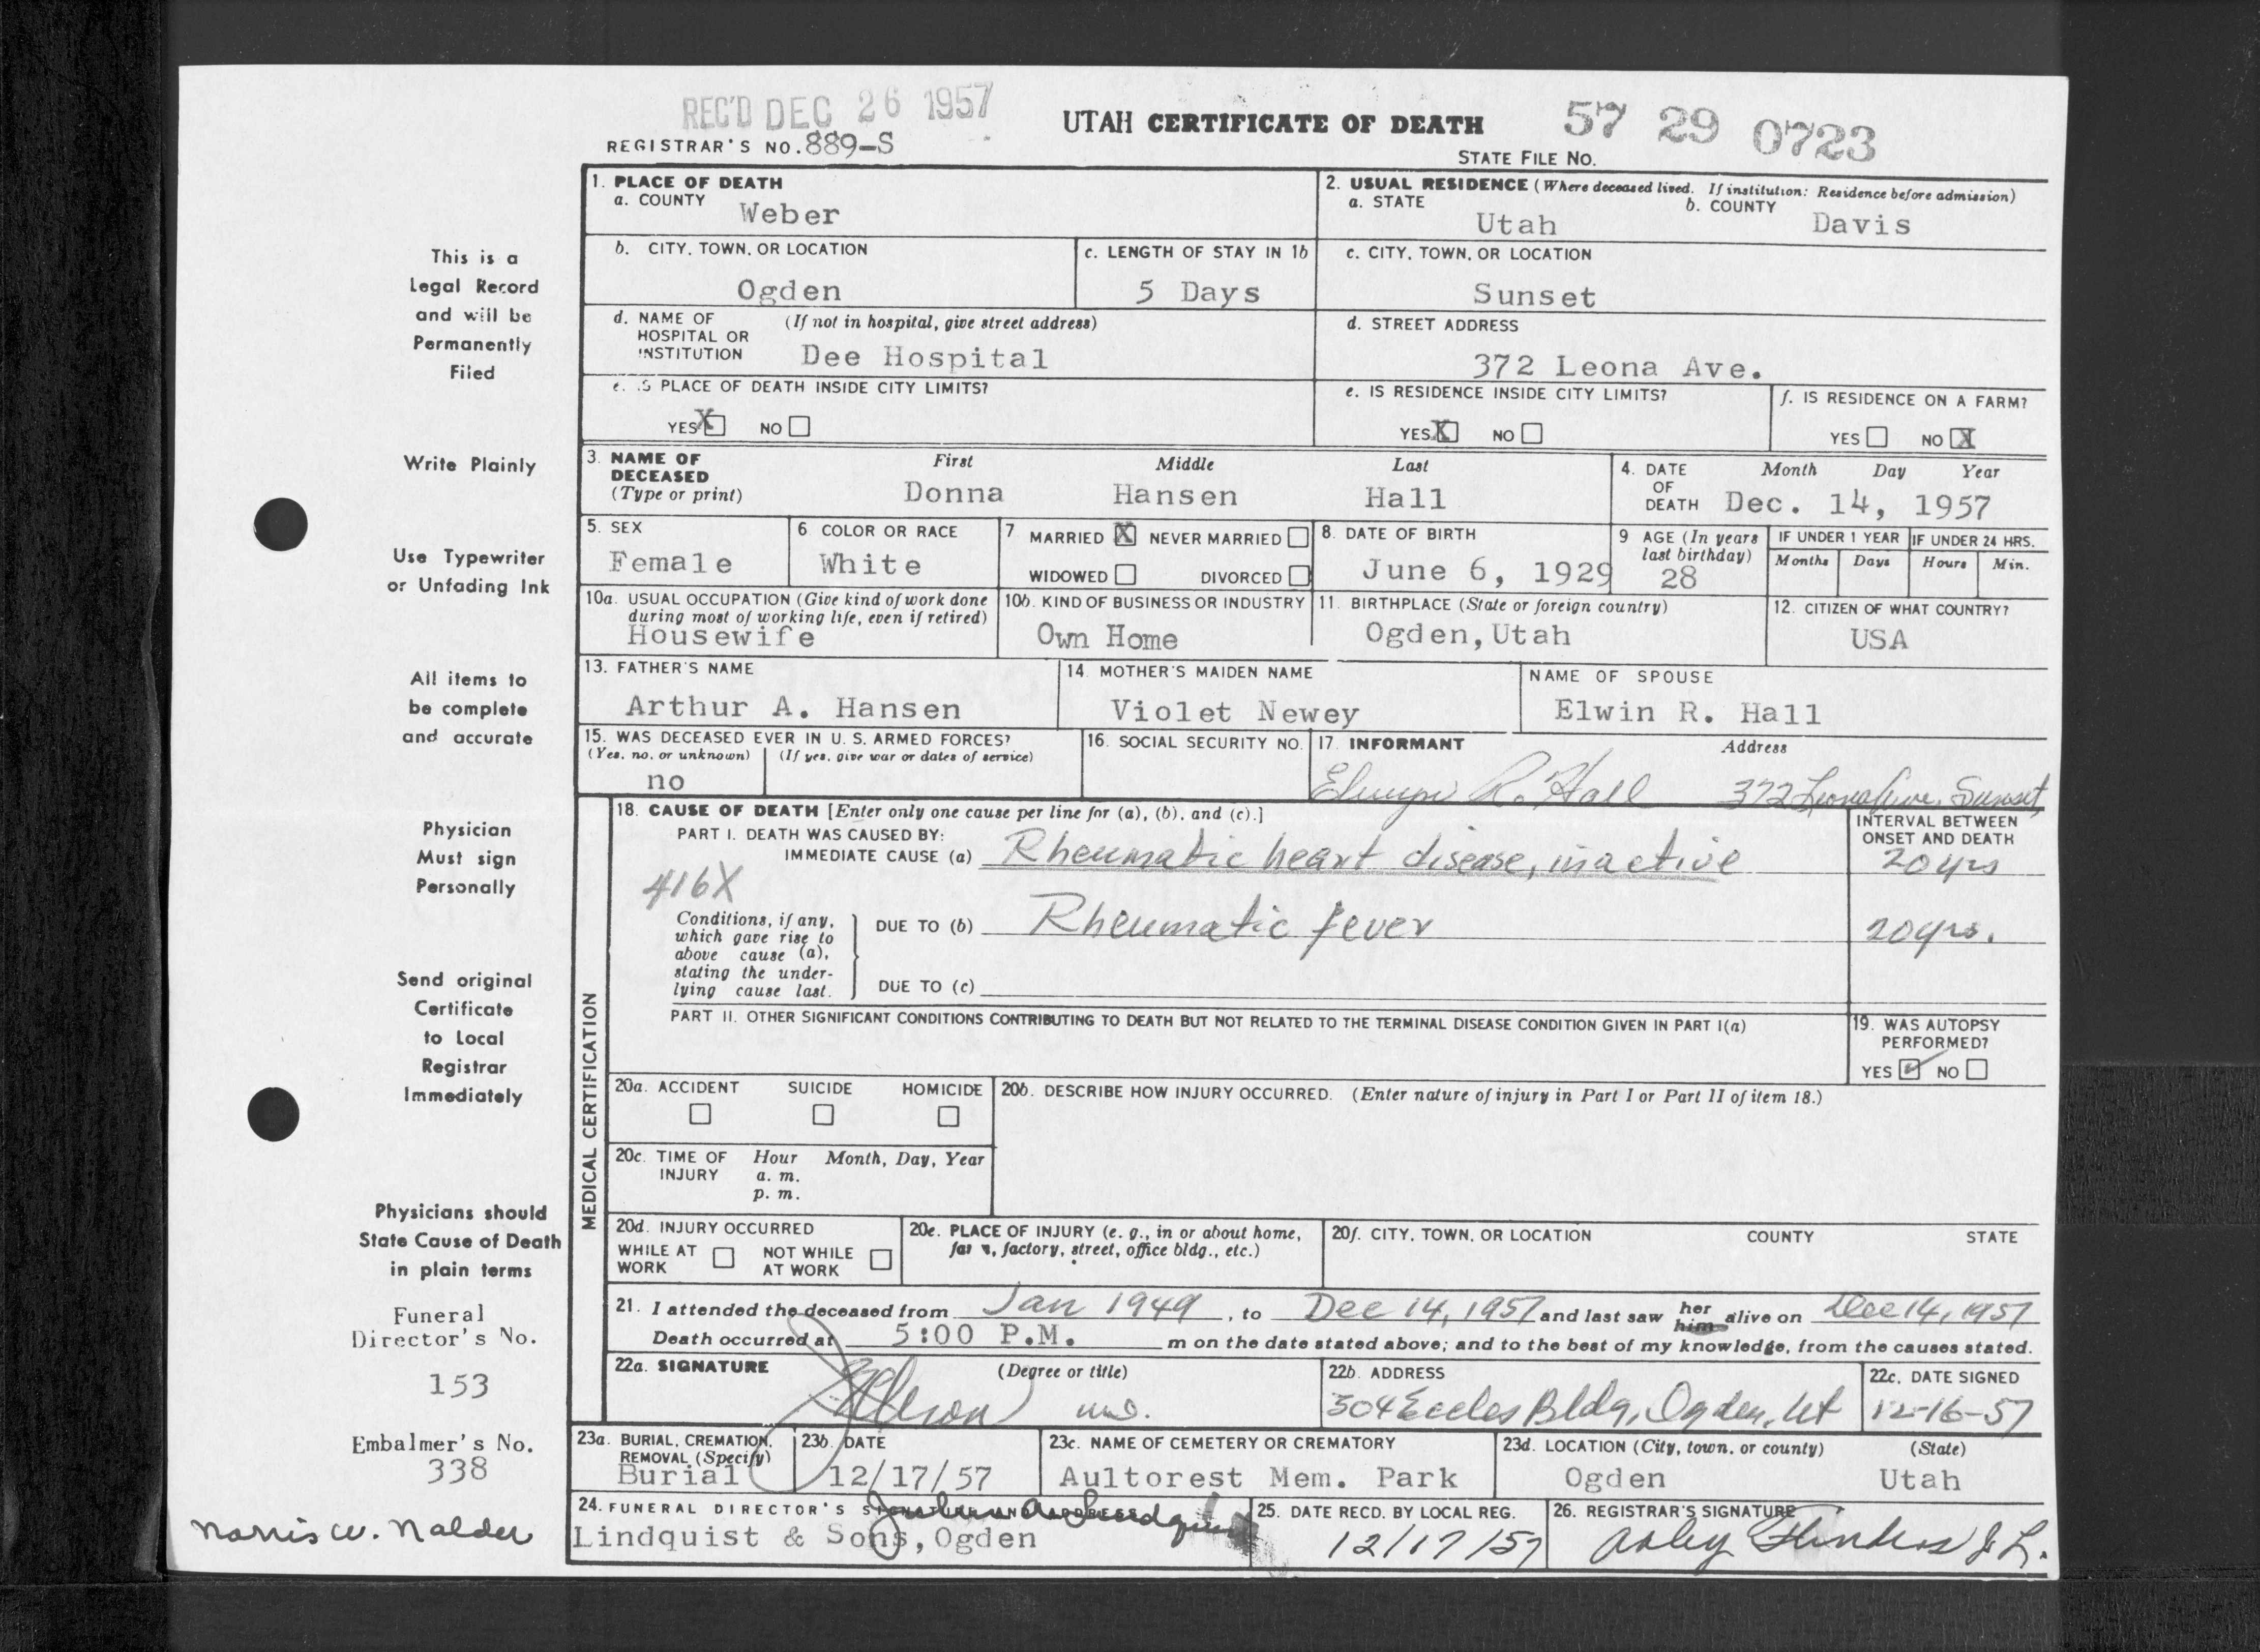 REC'D DEC 26 1957
UTAH CERTIFICATE OF DEATH
57 29 0723
REGISTRAR'S NO. 889-S
STATE FILE NO.
This is a
Legal Record
and will be
Permanently
Filed
Write Plainly
Use Typewriter
or Unfading Ink
All items to
be complete
and accurate
Physician
Must sign
Personally
Send original
Certificate
to Local
Registrar
Immediately
Physicians should
State Cause of Death
in plain terms
Funeral
Director's No.
153
Embalmer's No.
338
Norris W. Nalder
1. PLACE OF DEATH
a. COUNTY Weber
2. USUAL RESIDENCE (Where deceased lived. If institution: Residence before admission)
a. STATE Utah b. COUNTY Davis
b. CITY, TOWN, OR LOCATION
Ogden
c. LENGTH OF STAY IN 1b
5 Days
c. CITY, TOWN, OR LOCATION
Sunset
d. NAME OF HOSPITAL OR INSTITUTION (If not in hospital, give street address)
Dee Hospital
d. STREET ADDRESS
372 Leona Ave.
e. IS PLACE OF DEATH INSIDE CITY LIMITS?
YES X NO
e. IS RESIDENCE INSIDE CITY LIMITS?
YES X NO
f. IS RESIDENCE ON A FARM?
YES NO X
3. NAME OF DECEASED (Type or print)
First Middle Last
Donna Hansen Hall
4. DATE OF DEATH Month Day Year
Dec. 14, 1957
5. SEX
Female
6 COLOR OR RACE
White
7 MARRIED X NEVER MARRIED
WIDOWED DIVORCED
8. DATE OF BIRTH
June 6, 1929
9 AGE (In years last birthday)
28
IF UNDER 1 YEAR
Months Days
IF UNDER 24 HRS.
Hours Min.
10a. USUAL OCCUPATION (Give kind of work done during most of working life, even if retired)
Housewife
10b. KIND OF BUSINESS OR INDUSTRY
Own Home
11. BIRTHPLACE (State or foreign country)
Ogden, Utah
12. CITIZEN OF WHAT COUNTRY?
USA
13. FATHER'S NAME
Arthur A. Hansen
14. MOTHER'S MAIDEN NAME
Violet Newey
NAME OF SPOUSE
Elwin R. Hall
15. WAS DECEASED EVER IN U. S. ARMED FORCES?
(Yes, no, or unknown) (If yes, give war or dates of service)
no
16. SOCIAL SECURITY NO.
17. INFORMANT Address
R. Hall 372 Leona Ave. Sunset
MEDICAL CERTIFICATION
18. CAUSE OF DEATH [Enter only one cause per line for (a), (b), and (c).]
INTERVAL BETWEEN ONSET AND DEATH
PART I. DEATH WAS CAUSED BY:
IMMEDIATE CAUSE (a) Rheumatic heart disease, inactive 20 yrs
416X
Conditions, if any, which gave rise to above cause (a), stating the underlying cause last.
DUE TO (b) Rheumatic fever 20 yrs.
DUE TO (c)
PART II. OTHER SIGNIFICANT CONDITIONS CONTRIBUTING TO DEATH BUT NOT RELATED TO THE TERMINAL DISEASE CONDITION GIVEN IN PART I(a)
19. WAS AUTOPSY PERFORMED?
YES ✓ NO
20a. ACCIDENT SUICIDE HOMICIDE
20b. DESCRIBE HOW INJURY OCCURRED. (Enter nature of injury in Part I or Part II of item 18.)
20c. TIME OF INJURY Hour Month, Day, Year
a. m.
p. m.
20d. INJURY OCCURRED
WHILE AT WORK NOT WHILE AT WORK
20e. PLACE OF INJURY (e. g., in or about home, farm, factory, street, office bldg., etc.)
20f. CITY, TOWN, OR LOCATION COUNTY STATE
21. I attended the deceased from Jan 1949, to Dec 14, 1957 and last saw her him alive on Dec 14, 1957
Death occurred at 5:00 P.M. m on the date stated above; and to the best of my knowledge, from the causes stated.
22a. SIGNATURE (Degree or title)
M.D.
22b. ADDRESS
504 Eccles Bldg, Ogden, Ut
22c. DATE SIGNED
12-16-57
23a. BURIAL, CREMATION, REMOVAL (Specify)
Burial
23b. DATE
12/17/57
23c. NAME OF CEMETERY OR CREMATORY
Aultorest Mem. Park
23d. LOCATION (City, town, or county) (State)
Ogden Utah
24. FUNERAL DIRECTOR'S SIGNATURE AND ADDRESS
Lindquist & Sons, Ogden
25. DATE RECD. BY LOCAL REG.
12/17/57
26. REGISTRAR'S SIGNATURE